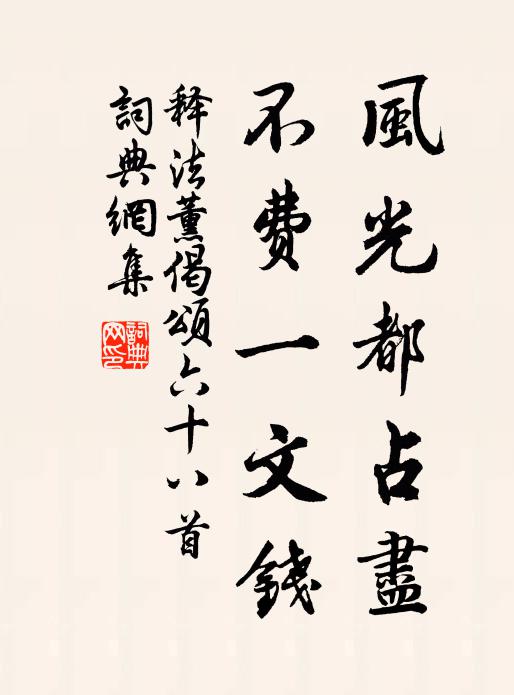 風光都占盡
不费一文錢
释法薰偈頌六十八首
詞典網集
詞典網印